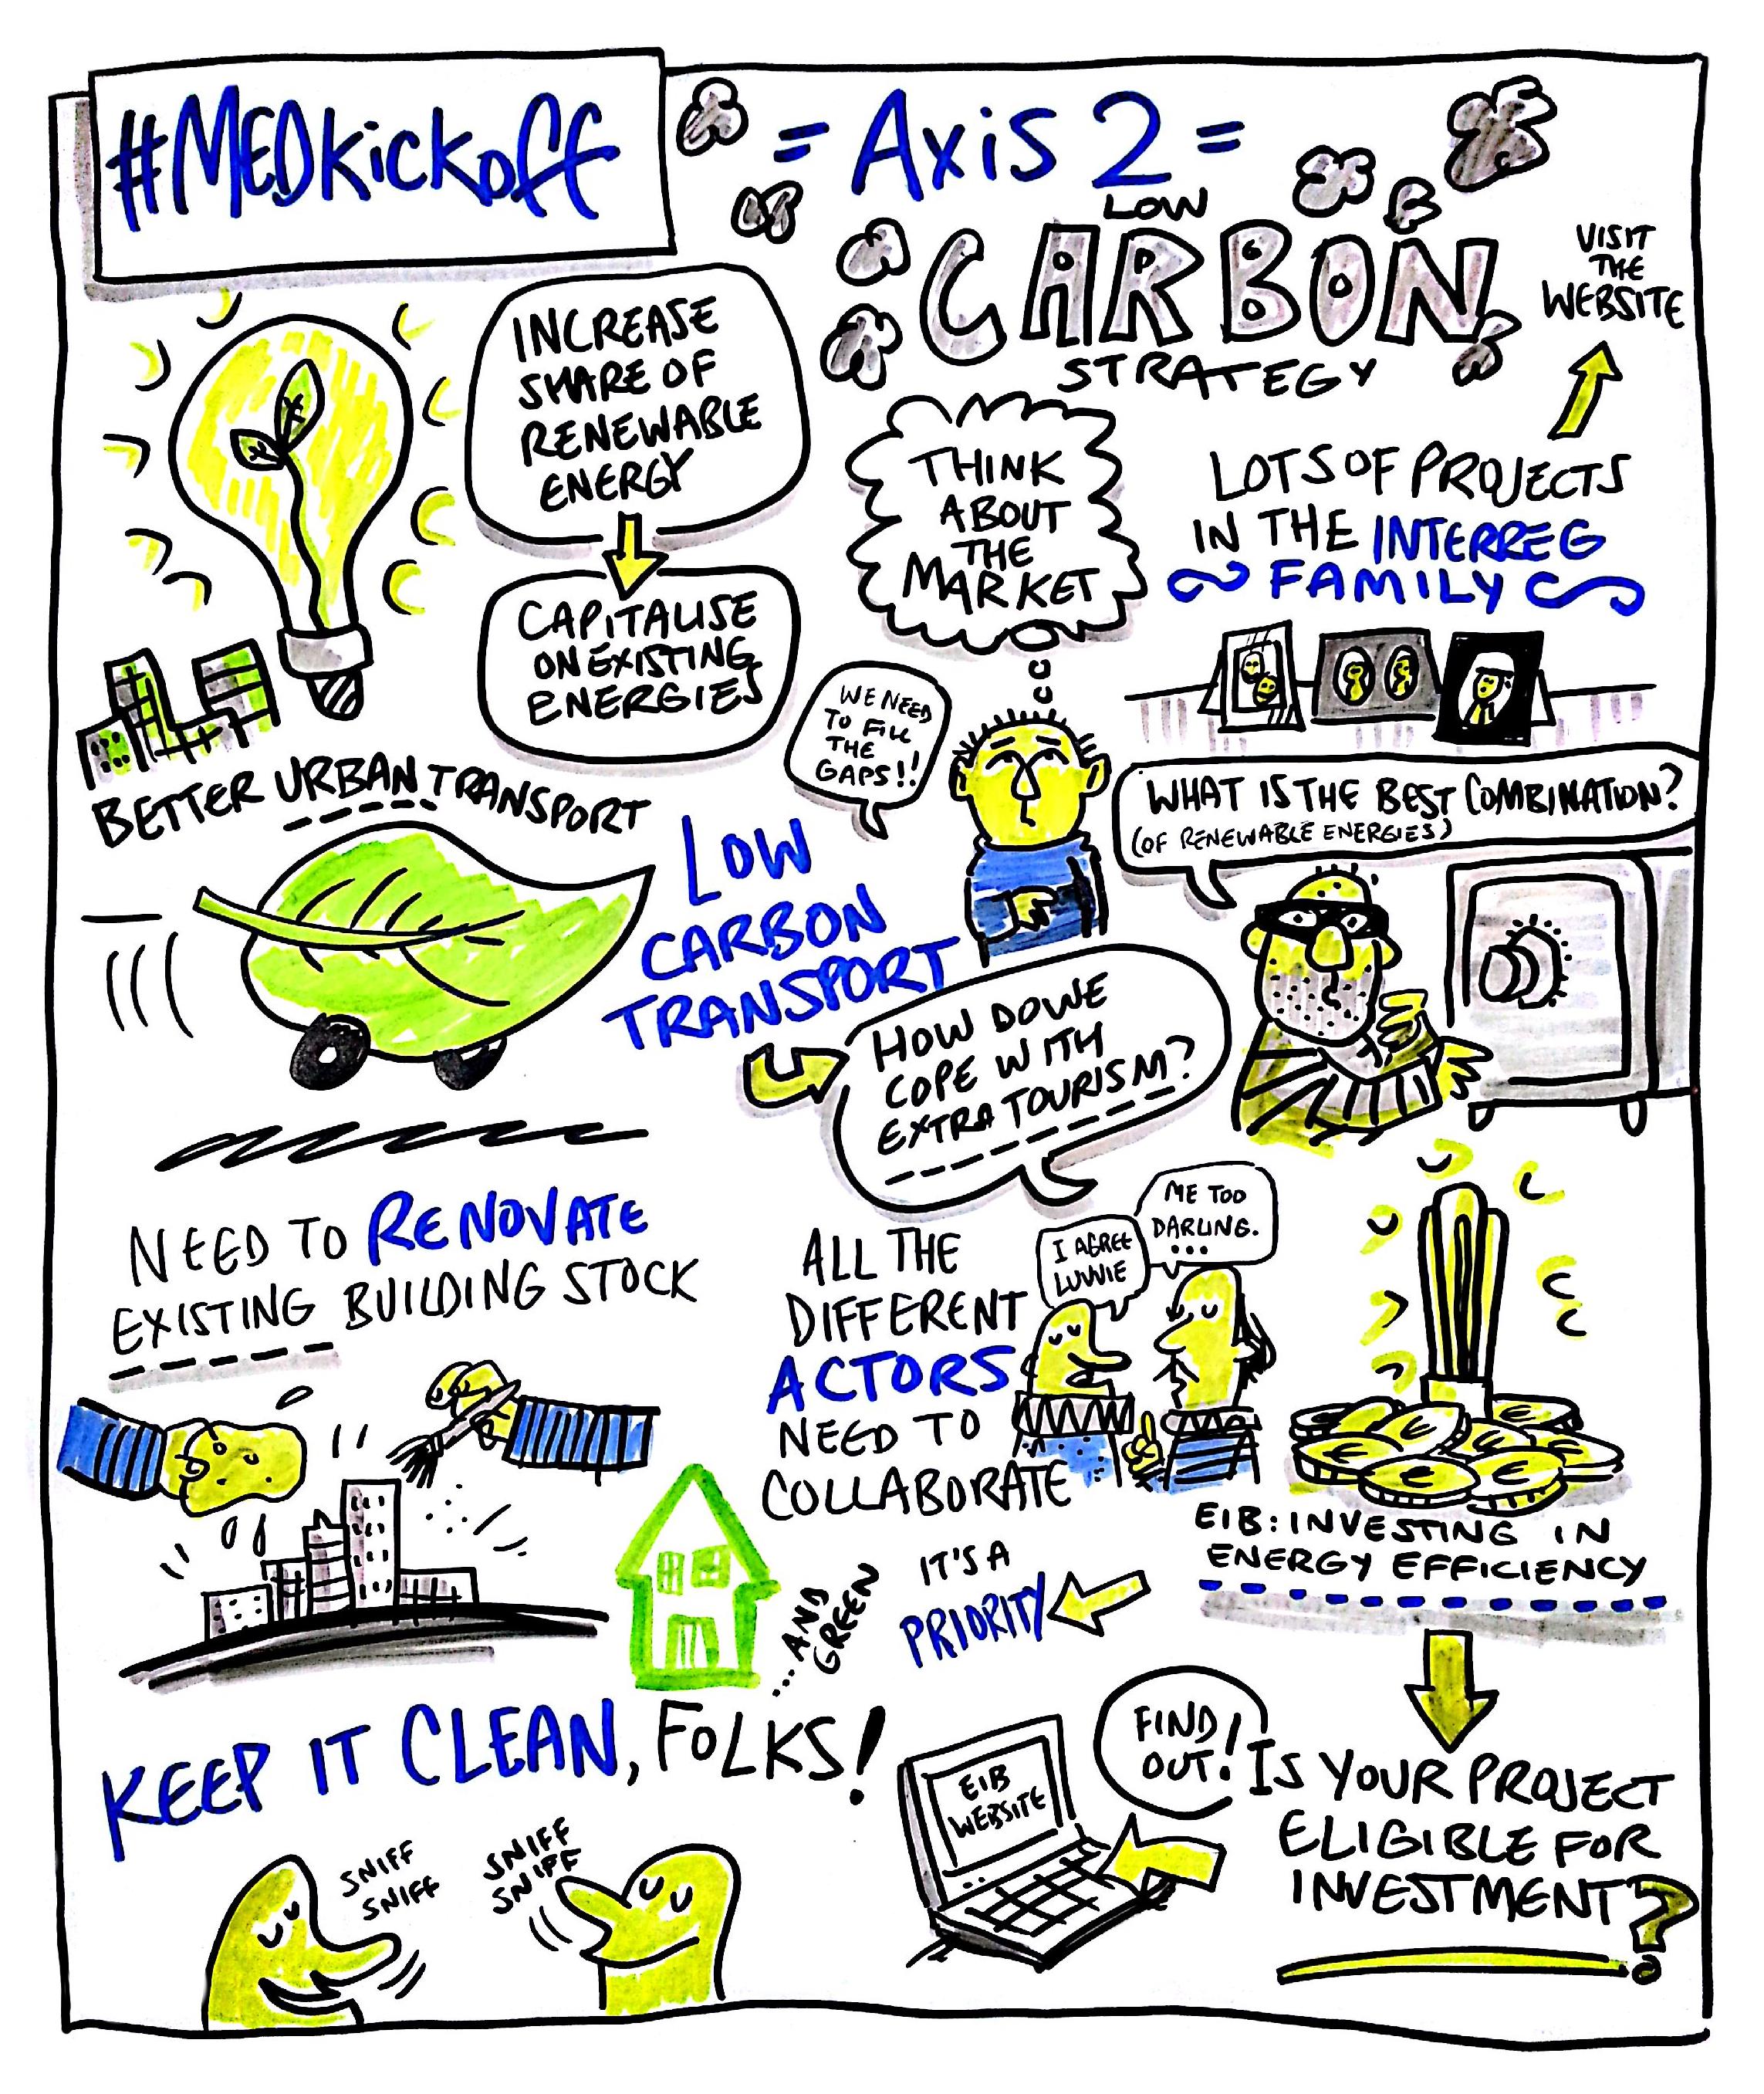 #MEDkickoff
= Axis 2 =
LOW
CARBON
STRATEGY
VISIT
THE
WEBSITE
INCREASE
SHARE OF
RENEWABLE
ENERGY
CAPITALISE
ON EXISTING
ENERGIES
THINK
ABOUT
THE
MARKET
LOTS OF PROJECTS
IN THE INTERREG
FAMILY
WE NEED
TO FILL
THE
GAPS!!
WHAT IS THE BEST COMBINATION?
(OF RENEWABLE ENERGIES)
BETTER URBAN TRANSPORT
LOW
CARBON
TRANSPORT
HOW DO WE
COPE WITH
EXTRA TOURISM?
NEED TO RENOVATE
EXISTING BUILDING STOCK
ALL THE
DIFFERENT
ACTORS
NEED TO
COLLABORATE
I AGREE
LUVVIE
ME TOO
DARLING.
...
EIB: INVESTING IN
ENERGY EFFICIENCY
IT'S A
PRIORITY
...AND
GREEN
KEEP IT CLEAN, FOLKS!
SNIFF
SNIFF
SNIFF
SNIFF
EIB
WEBSITE
FIND
OUT!
IS YOUR PROJECT
ELIGIBLE FOR
INVESTMENT?